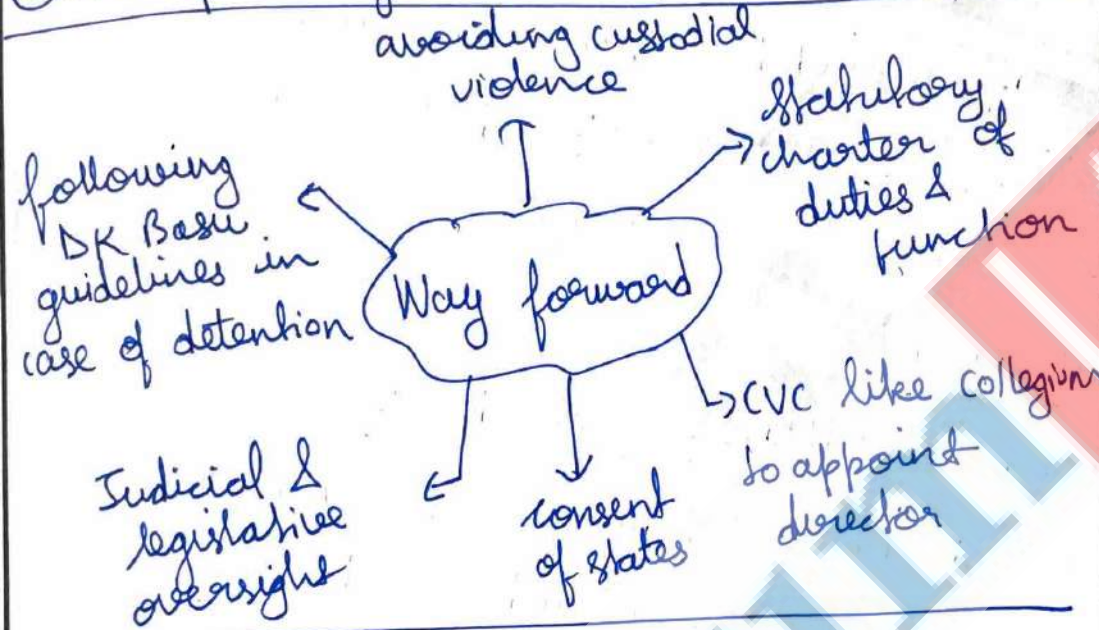 avoiding custodial
violence
Statutory
charter of
duties &
function
following
DK Basu
guidelines in
case of detention
Way forward
CVC like collegium
to appoint
director
Judicial &
legislative
oversight
consent
of states